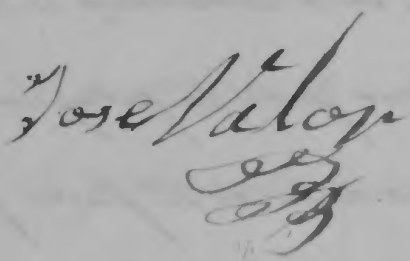 Jose Valop